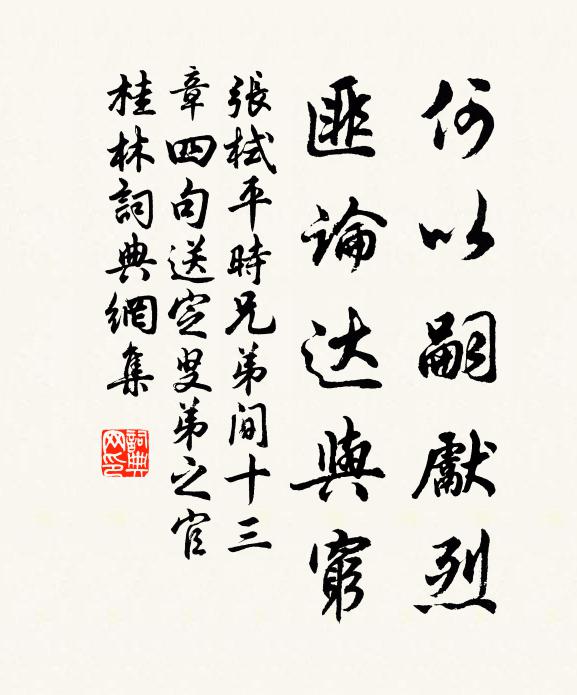 何以嗣獻烈
匪論达與窮
張栻平時兄弟間十三
章四句送定叟弟之官
桂林詞典網集
詞典网印